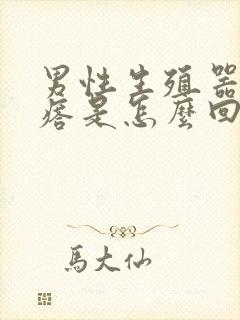 男性生殖器
痞是怎麼回
馬大仙